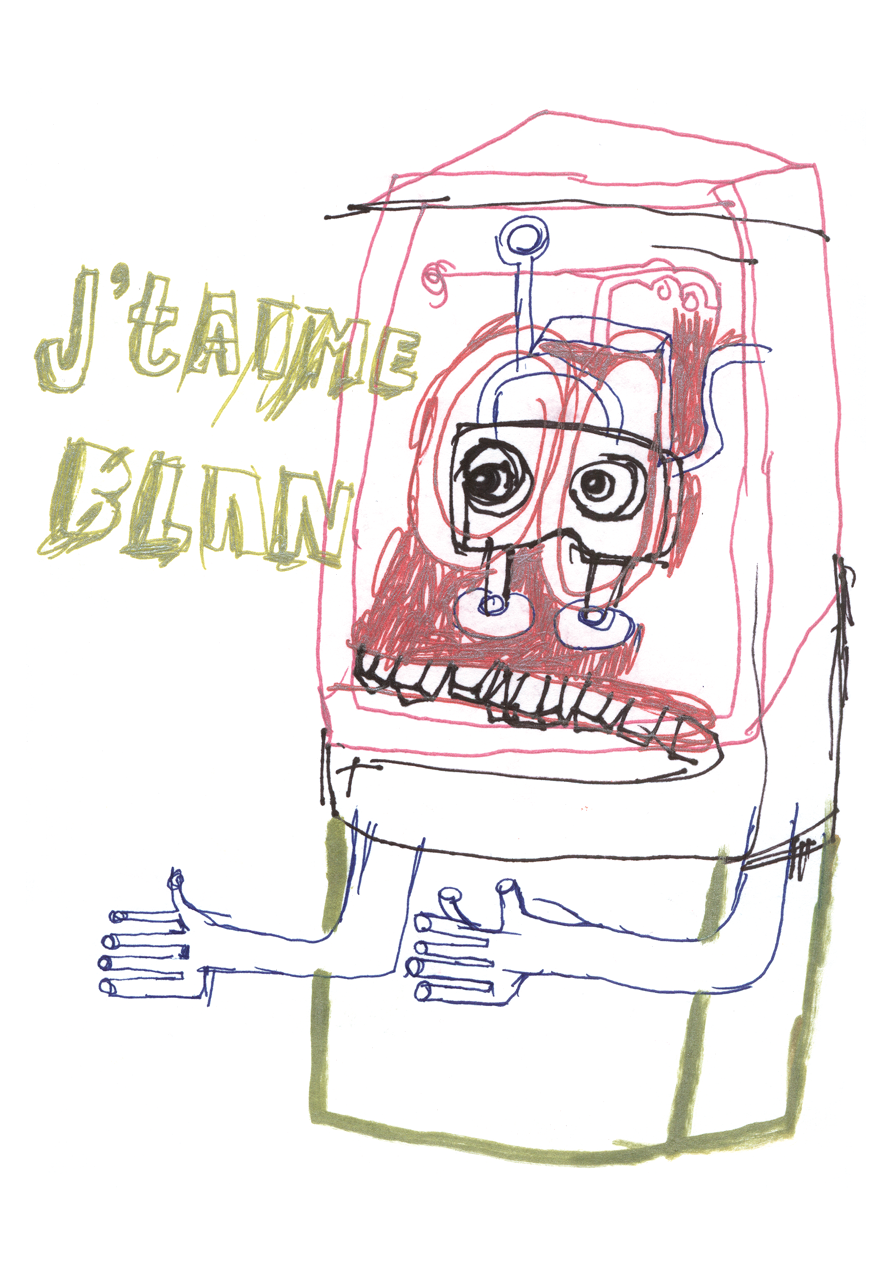 J'tAiME
BLAN